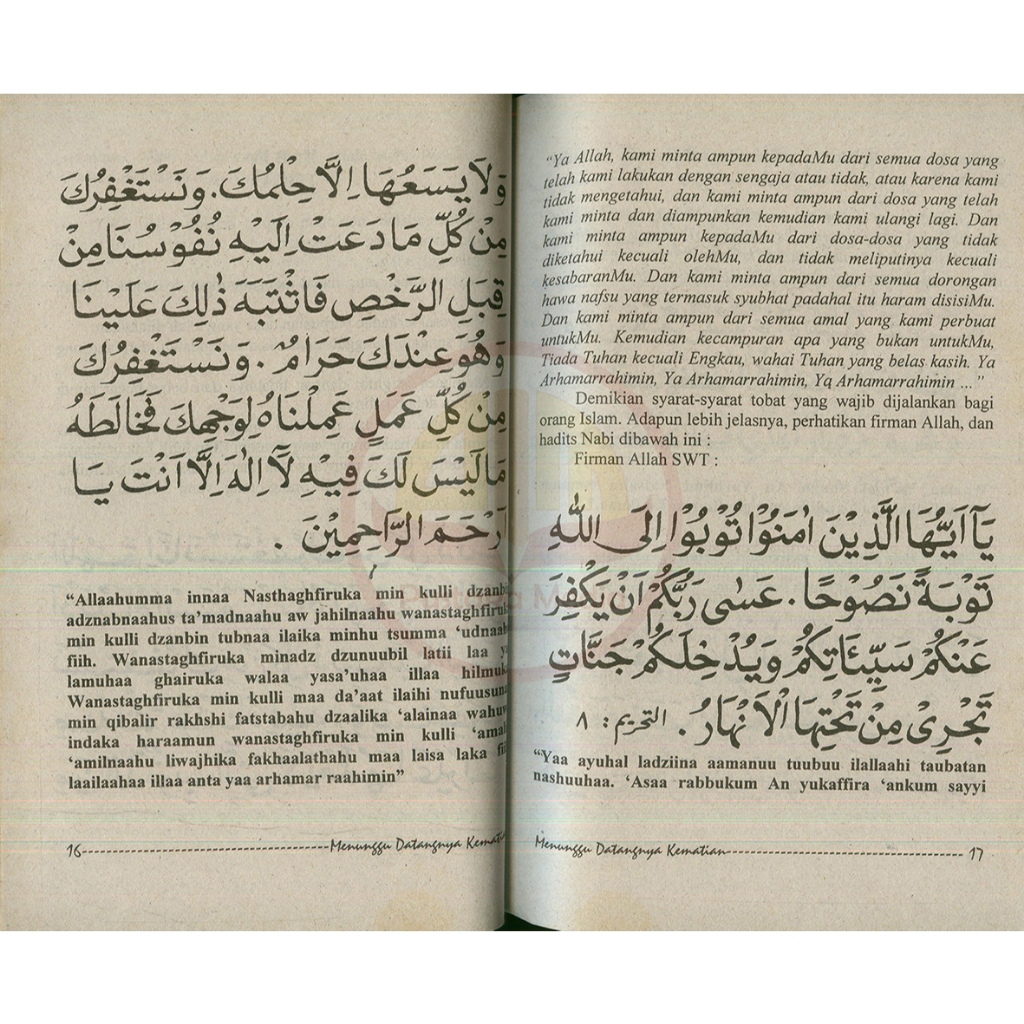 وَلَا يَسَعُهَا اِلَّا حِلْمُكَ. وَنَسْتَغْفِرُكَ
مِنْ كُلِّ مَا دَعَتْ اِلَيْهِ نُفُوْسُنَا مِنْ
قِبَلِ الرَّخْصِ فَاشْتَبَهَ ذٰلِكَ عَلَيْنَا
وَهُوَ عِنْدَكَ حَرَامٌ. وَنَسْتَغْفِرُكَ
مِنْ كُلِّ عَمَلٍ عَمِلْنَاهُ لِوَجْهِكَ فَخَالَطَهُ
مَا لَيْسَ لَكَ فِيْهِ لَآ اِلٰهَ اِلَّا اَنْتَ يَا
اَرْحَمَ الرَّاحِمِيْنَ.
“Allaahumma innaa Nasthaghfiruka min kulli dzanb
adznabnaahus ta’madnaahu aw jahilnaahu wanastaghfiruk
min kulli dzanbin tubnaa ilaika minhu tsumma ‘udnaah
fiih. Wanastaghfiruka minadz dzunuubil latii laa y
lamuhaa ghairuka walaa yasa’uhaa illaa hilmuk
Wanastaghfiruka min kulli maa da’aat ilaihi nufuusuna
min qibalir rakhshi fatstabahu dzaalika ‘alainaa wahuw
indaka haraamun wanastaghfiruka min kulli ‘amal
‘amilnaahu liwajhika fakhaalathahu maa laisa laka fii
laailaahaa illaa anta yaa arhamar raahimin”
16 Menunggu Datangnya Kemati
“Ya Allah, kami minta ampun kepadaMu dari semua dosa yang
telah kami lakukan dengan sengaja atau tidak, atau karena kami
tidak mengetahui, dan kami minta ampun dari dosa yang telah
kami minta dan diampunkan kemudian kami ulangi lagi. Dan
kami minta ampun kepadaMu dari dosa-dosa yang tidak
diketahui kecuali olehMu, dan tidak meliputinya kecuali
kesabaranMu. Dan kami minta ampun dari semua dorongan
hawa nafsu yang termasuk syubhat padahal itu haram disisiMu.
Dan kami minta ampun dari semua amal yang kami perbuat
untukMu. Kemudian kecampuran apa yang bukan untukMu,
Tiada Tuhan kecuali Engkau, wahai Tuhan yang belas kasih. Ya
Arhamarrahimin, Ya Arhamarrahimin, Yq Arhamarrahimin ...”
Demikian syarat-syarat tobat yang wajib dijalankan bagi
orang Islam. Adapun lebih jelasnya, perhatikan firman Allah, dan
hadits Nabi dibawah ini :
Firman Allah SWT :
يَآ اَيُّهَا الَّذِيْنَ اٰمَنُوْا تُوْبُوْا اِلَى اللّٰهِ
تَوْبَةً نَصُوْحًا. عَسٰى رَبُّكُمْ اَنْ يَكْفِرَ
عَنْكُمْ سَيِّئَاتِكُمْ وَيُدْخِلَكُمْ جَنَّاتٍ
تَجْرِىْ مِنْ تَحْتِهَا الْاَنْهَارُ. التحريم: ٨
“Yaa ayuhal ladziina aamanuu tuubuu ilallaahi taubatan
nashuuhaa. ‘Asaa rabbukum An yukaffira ‘ankum sayyi
Menunggu Datangnya Kematian 17